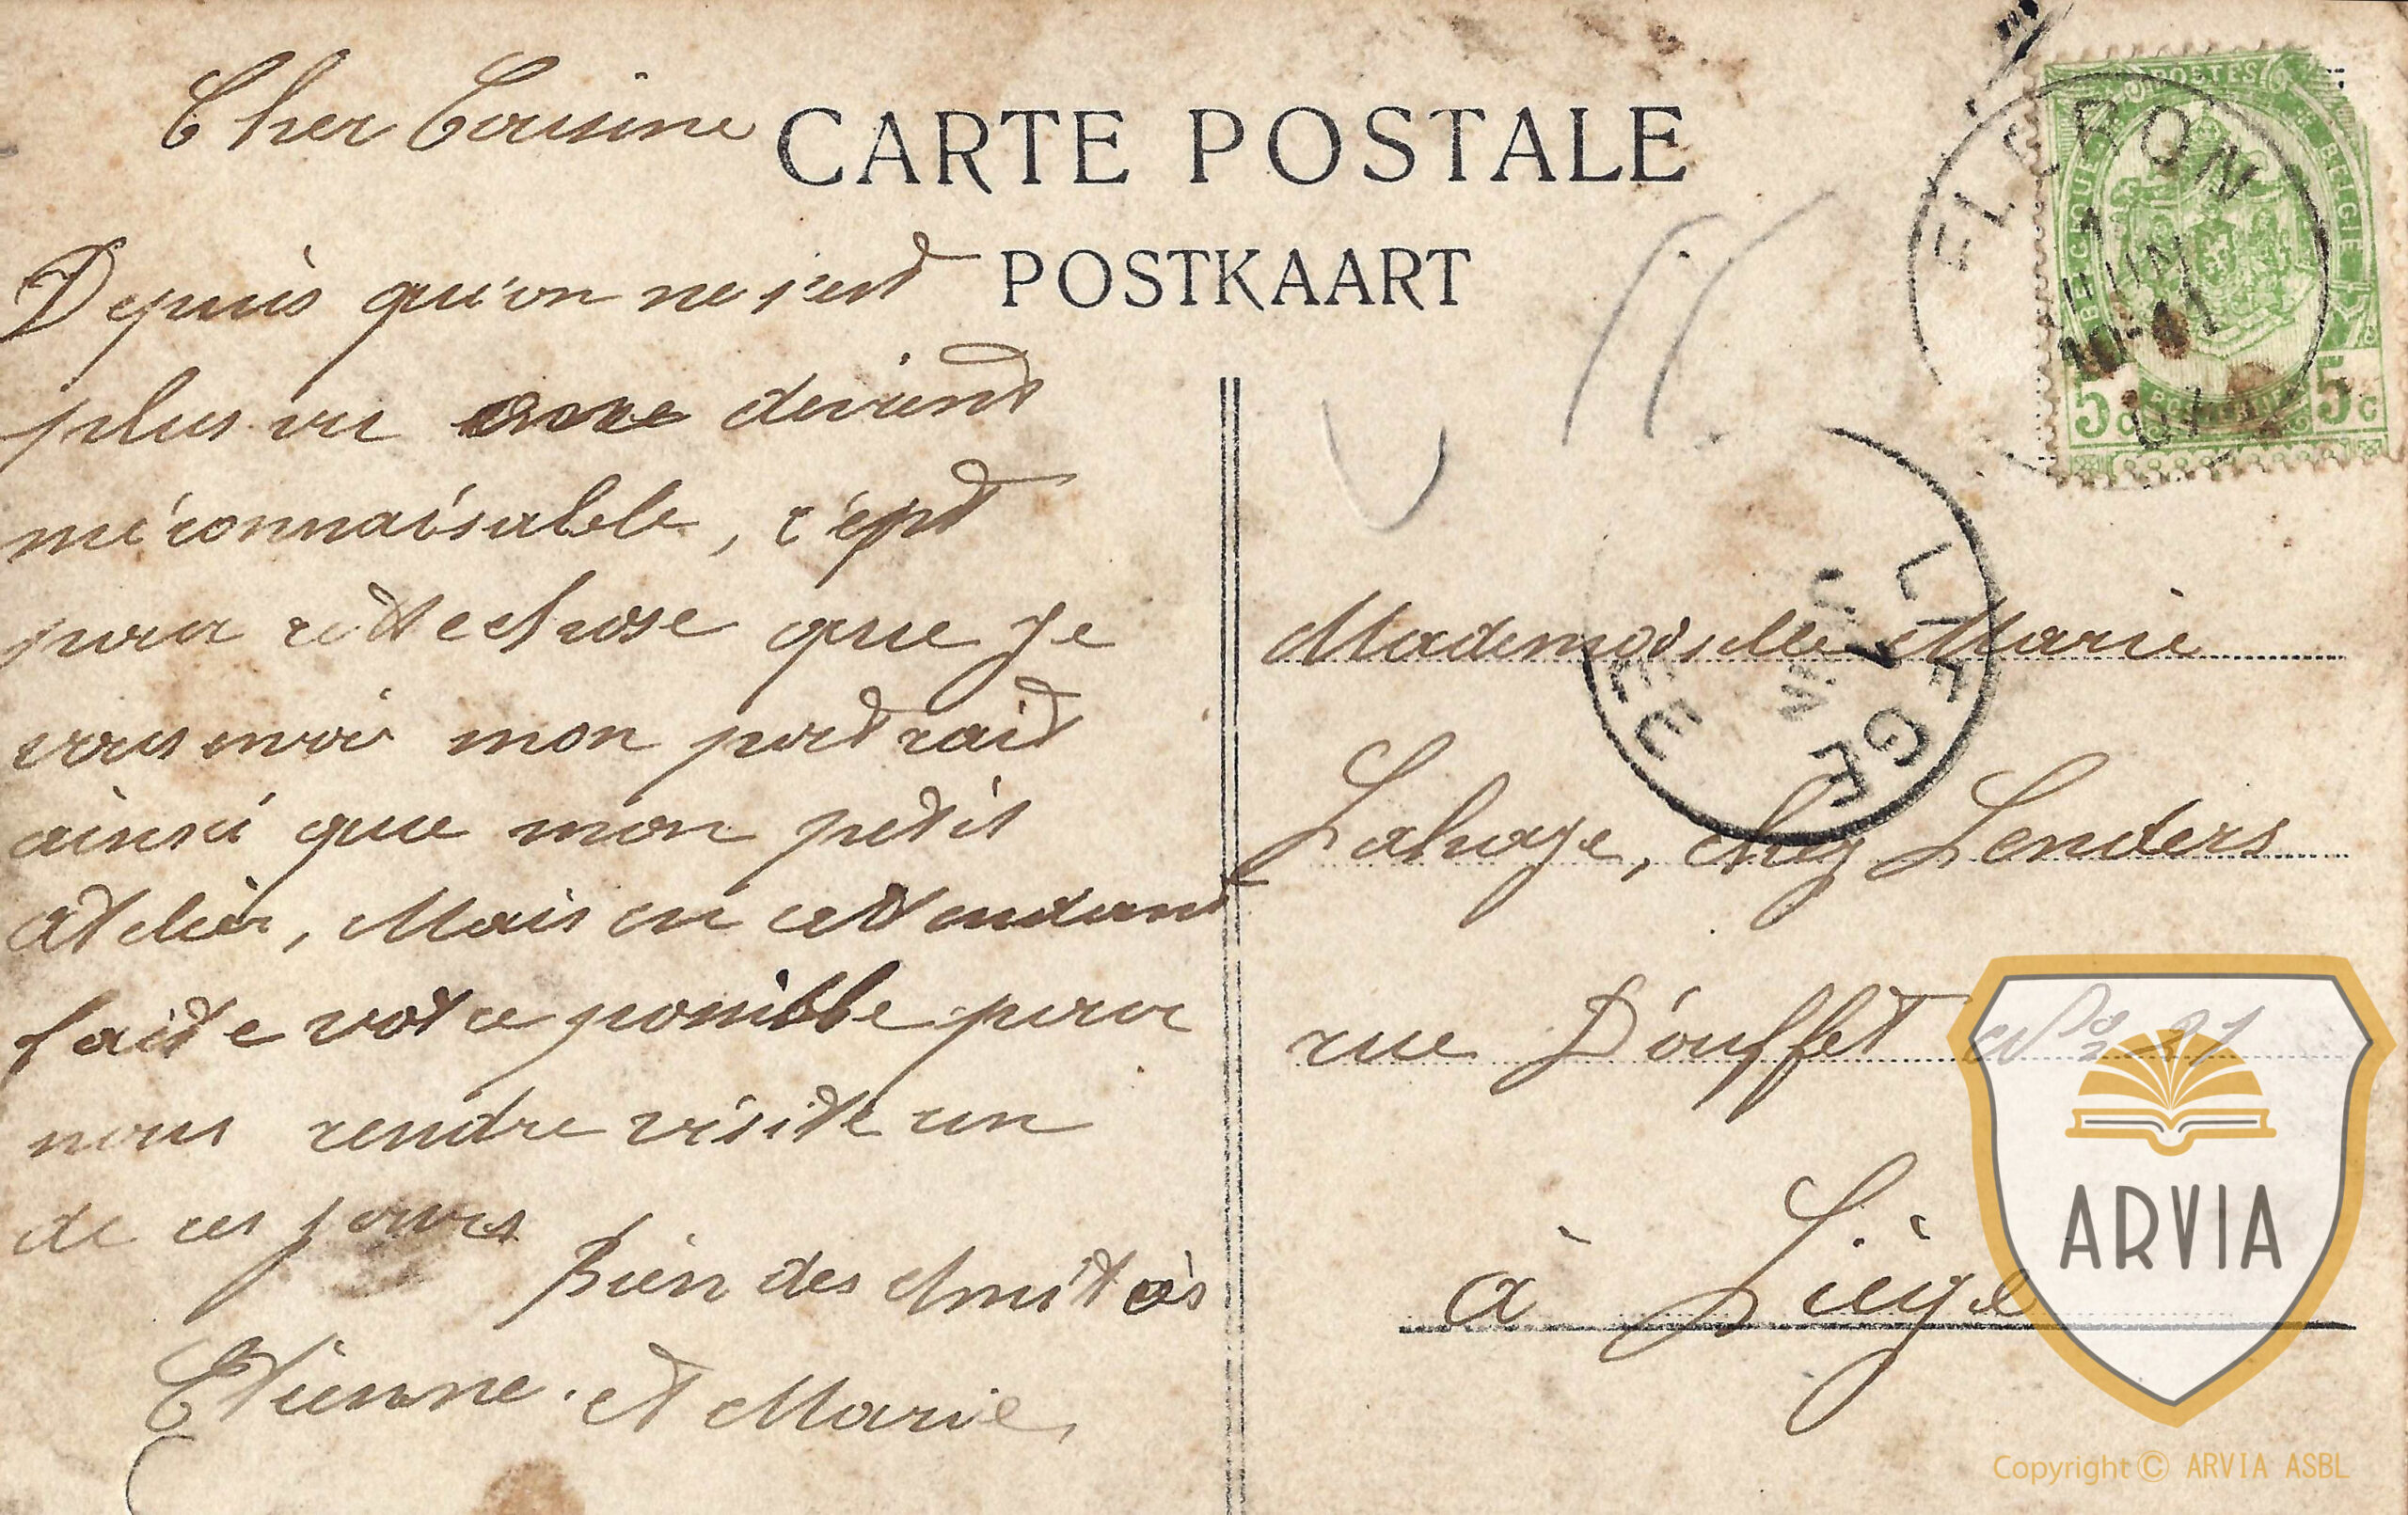 Cher Cousine
CARTE POSTALE
POSTKAART
Depuis qu'on ne s'est
plus vu devient
méconnaisable, c'est
pour cette chose que je
vous envoi mon portrait
ainsi que mon petit
atelier, Mais en attendant
faite votre possible pour
nous rendre visite un
de ces jours
Bien des Amitiés
Etienne et Marie
POSTES
BELGIQUE BELGIË
5c 5c
FLERON
1
JUIN
10-11
07
LIEGE
Mademoiselle Marie
Lahaye, Chez Lenders
rue D'ouffet No 21
à Liège
ARVIA
Copyright © ARVIA ASBL